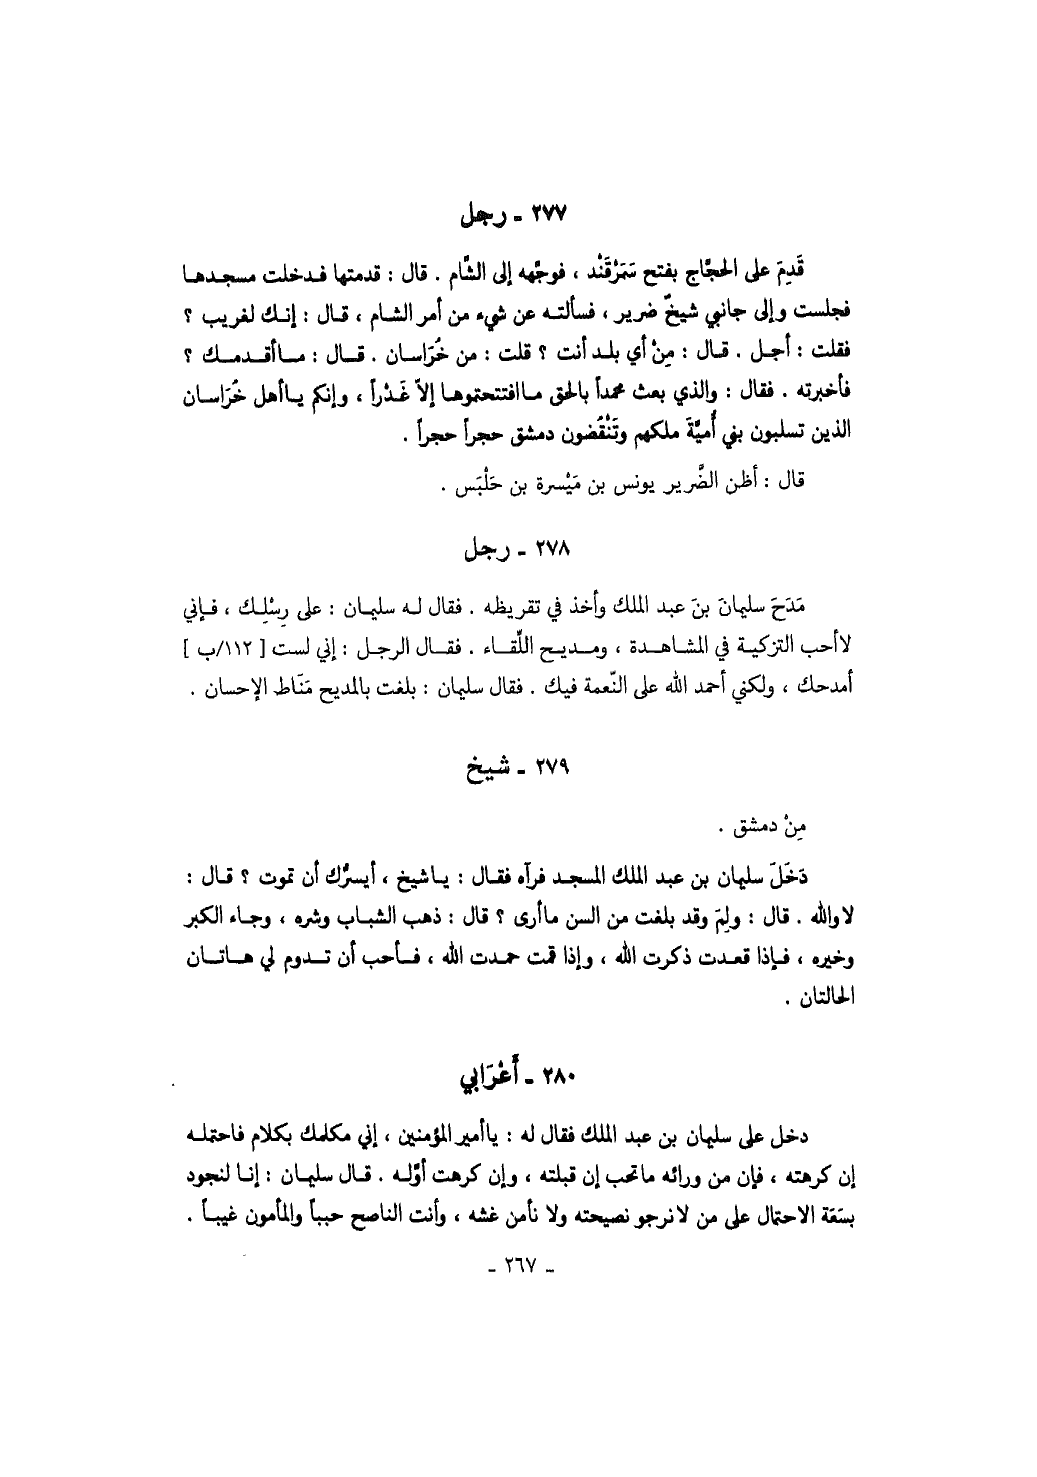 ٢٧٧ - رجل
قَدِمَ على الحجَّاج بفتح سَمَرْقَنْد ، فوجَّهه إلى الشَّام . قال : قدمتها فدخلت مسجدها
فجلست وإلى جانبي شيخٌ ضرير ، فسألته عن شيء من أمر الشام ، قال : إنك لغريب ؟
فقلت : أجل . قال : مِنْ أي بلد أنت ؟ قلت : من خُرَاسان . قال : ماأقدمك ؟
فأخبرته . فقال : والذي بعث محمداً بالحق ماافتتحتموها إلاّ غَدْراً ، وإنكم ياأهل خُرَاسان
الذين تسلبون بني أُميَّةَ ملكهم وتَنْقُضون دمشق حجراً حجراً .
قال : أظن الضَّرير يونس بن مَيْسرة بن حَلْبَس .
٢٧٨ - رجل
مَدَحَ سليمانَ بنَ عبد الملك وأخذ في تقريظه . فقال له سليمان : على رِسْلِك ، فإني
لاأحب التزكية في المشاهدة ، ومديح اللِّقاء . فقال الرجل : إني لست [ ١١٢/ب ]
أمدحك ، ولكني أحمد الله على النّعمة فيك . فقال سليمان : بلغت بالمديح مَنَاط الإحسان .
٢٧٩ - شيخ
مِنْ دمشق .
دَخَلَ سليمان بن عبد الملك المسجد فرآه فقال : ياشيخ ، أيسرُّك أن تموت ؟ قال :
لاوالله . قال : ولِمَ وقد بلغت من السن ماأرى ؟ قال : ذهب الشباب وشره ، وجاء الكبر
وخيره ، فإذا قعدت ذكرت الله ، وإذا قمت حمدت الله ، فأحب أن تدوم لي هاتان
الحالتان .
٢٨٠ - أَعْرَابي
دخل على سليمان بن عبد الملك فقال له : ياأمير المؤمنين ، إني مكلمك بكلام فاحتمله
إن كرهته ، فإن من ورائه ماتحب إن قبلته ، وإن كرهت أوَّله . قال سليمان : إنا لنجود
بسَعَة الاحتمال على من لانرجو نصيحته ولا نأمن غشه ، وأنت الناصح حبباً والمأمون غيباً .
- ٢٦٧ -